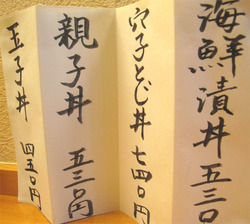 海鮮漬丼 五三〇
穴子とじ丼 七四〇円
親子丼 五三〇円
玉子丼 四五〇円